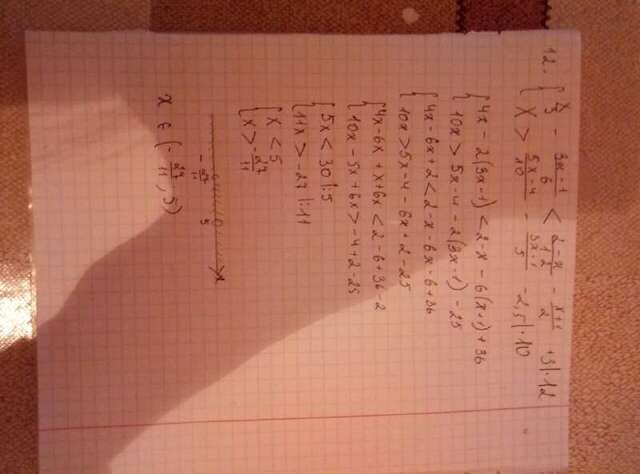 12. { x/3 - (3x-1)/6 < (2-x)/12 - (x+1)/2 + 3 |·12
{ x > (5x-4)/10 - (3x-1)/5 - 2,5 |·10
{ 4x - 2(3x-1) < 2-x - 6(x+1) + 36
{ 10x > 5x-4 - 2(3x-1) - 25
{ 4x - 6x + 2 < 2 - x - 6x - 6 + 36
{ 10x > 5x - 4 - 6x + 2 - 25
{ 4x - 6x + x + 6x < 2 - 6 + 36 - 2
{ 10x - 5x + 6x > -4 + 2 - 25
{ 5x < 30 |:5
{ 11x > -27 |:11
{ x < 5
{ x > -27/11
-27/11 5 x
x ∈ (-27/11, 5)